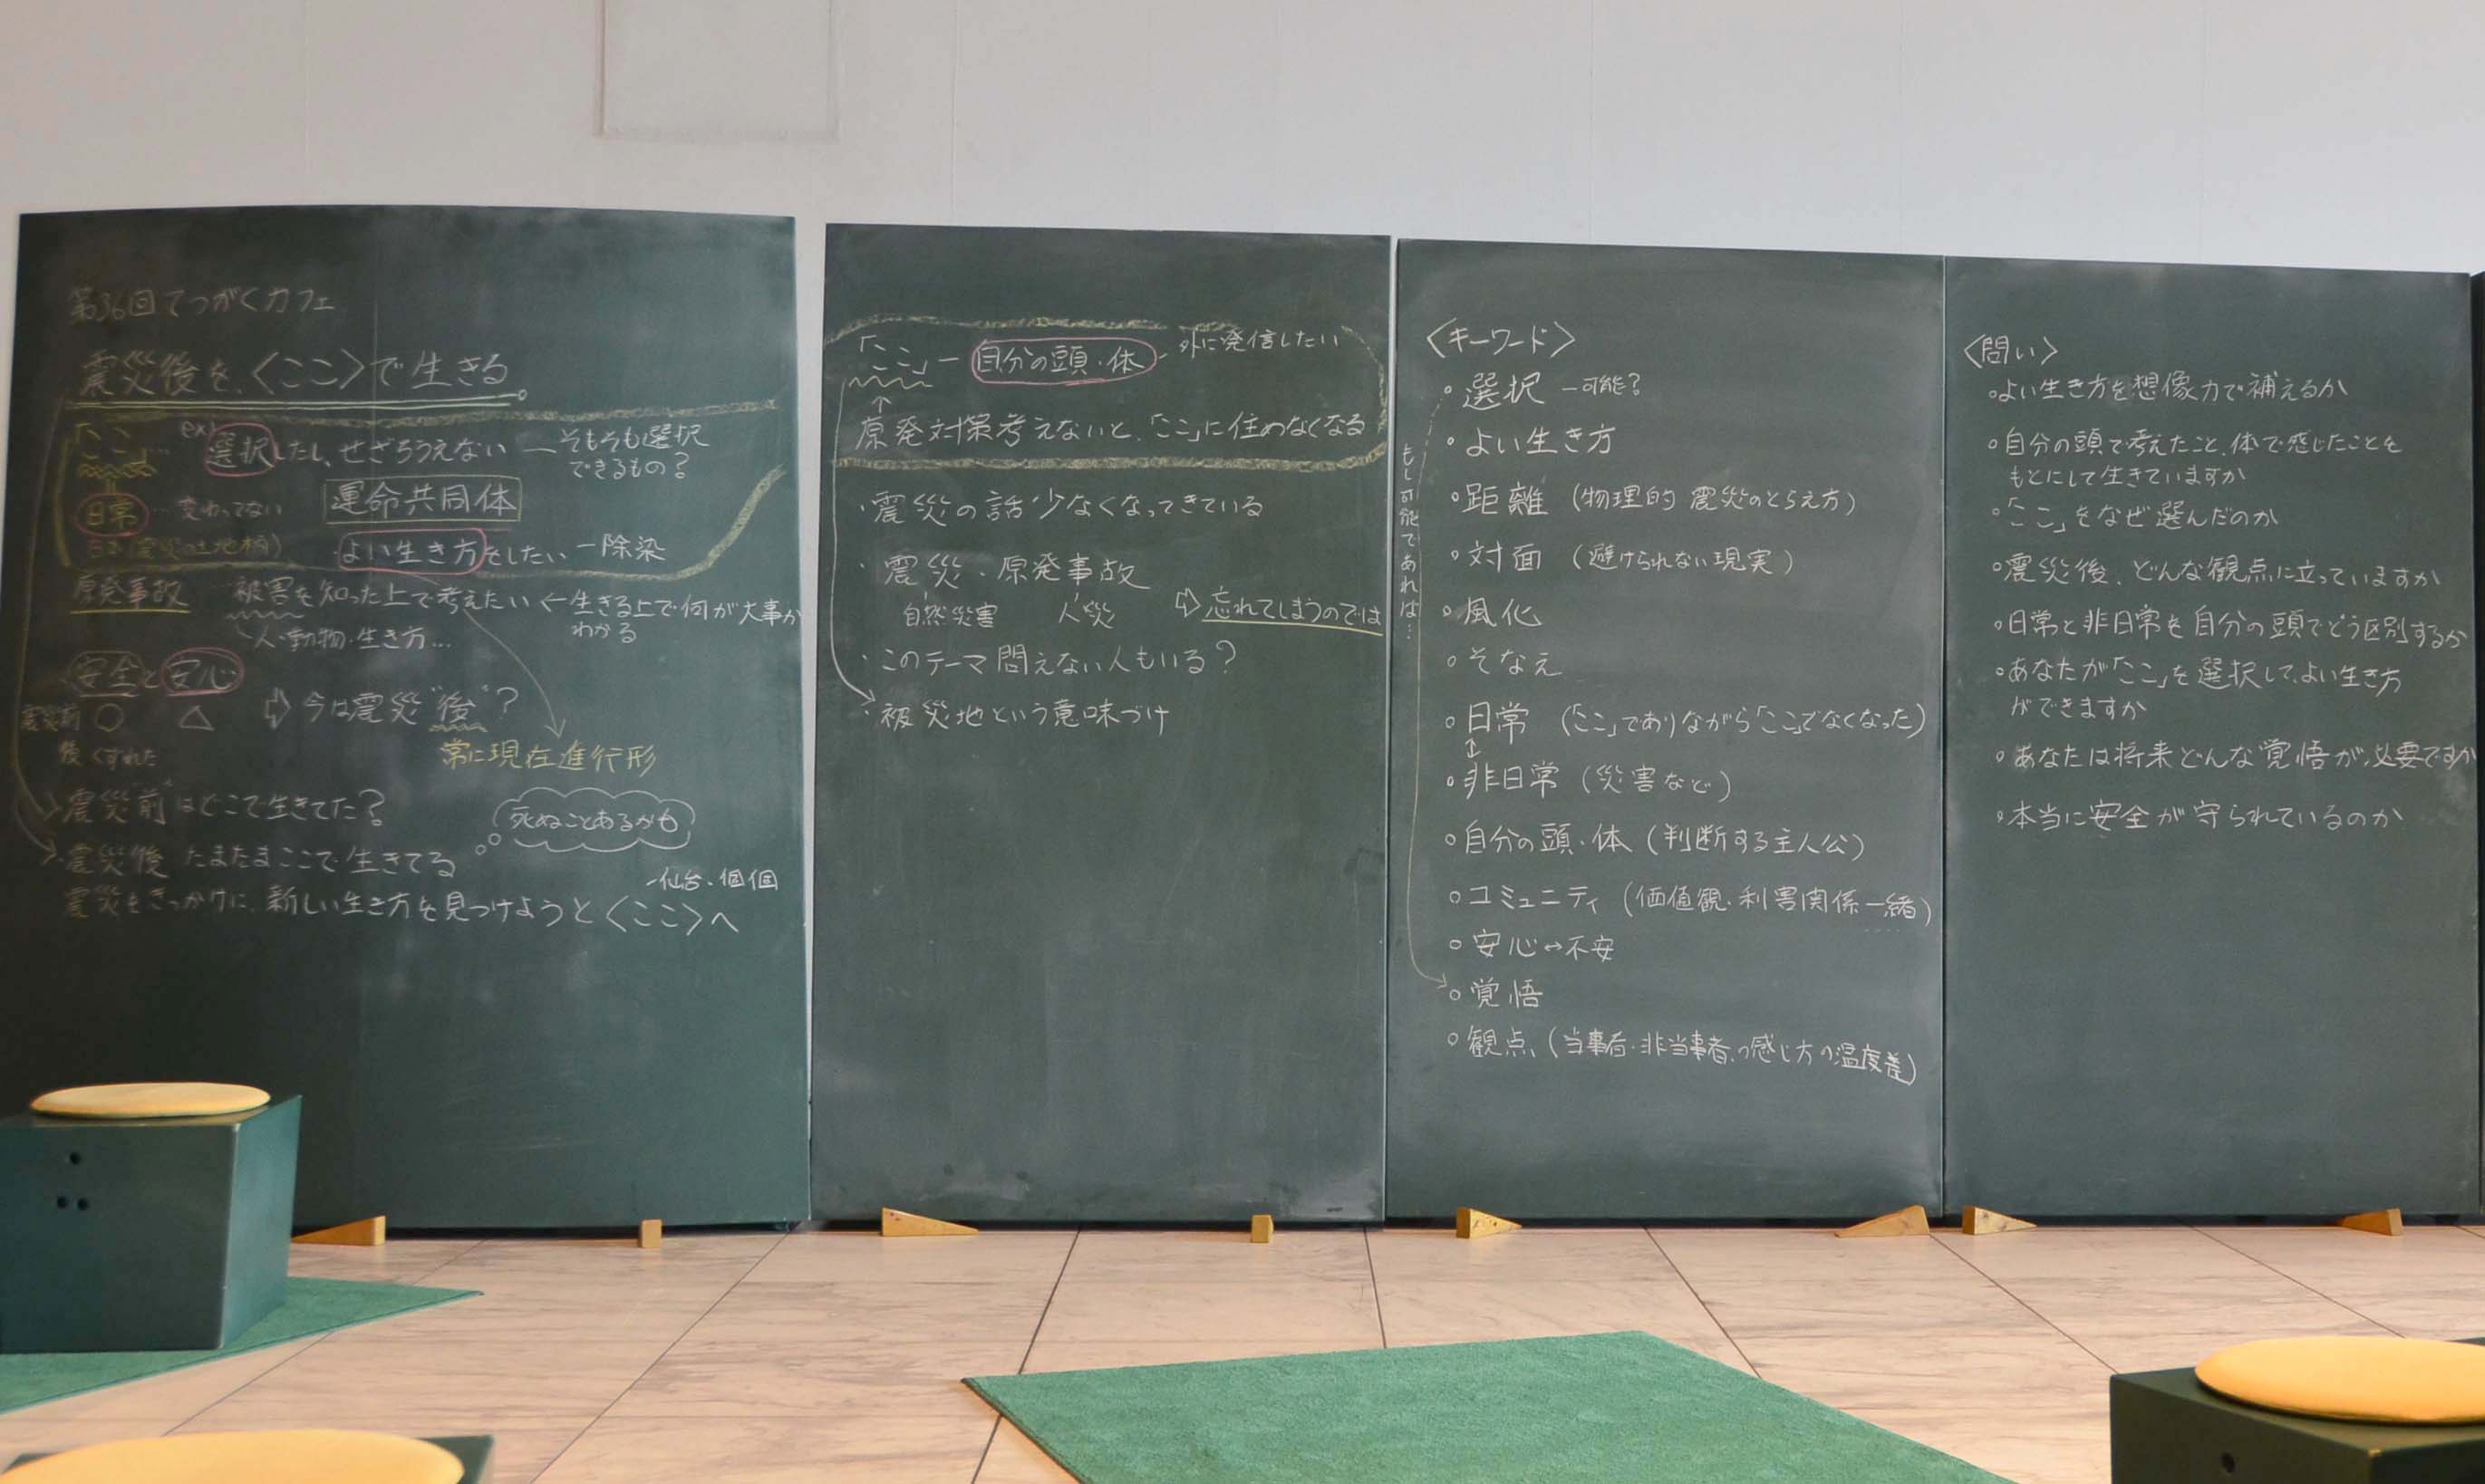 第36回てつがくカフェ
震災後を、〈ここ〉で生きる
「ここ」… ex) 選択したし、せざろうえない ― そもそも選択
できるもの？
運命共同体
日常 … 変わってない
日本(震災の土地柄)
よい生き方をしたい ― 除染
原発事故 … 被害を知った上で考えたい ← 生きる上で何が大事か
わかる
人・動物・生き方…
安全と安心
震災前 ○ △
後 くずれた
⇨ 今は震災"後"？
常に現在進行形
・震災"前"はどこで生きてた？
死ぬことあるかも
・震災後 たまたまここで生きてる
―仙台・個個
震災をきっかけに、新しい生き方を見つけようと〈ここ〉へ
「ここ」― 自分の頭・体 - 外に発信したい
↑
原発対策考えないと、「ここ」に住めなくなる
・震災の話少なくなってきている
・震災・原発事故
自然災害 人災 ⇨ 忘れてしまうのでは
・このテーマ問えない人もいる？
・被災地という意味づけ
〈キーワード〉
もし可能であれば…
○選択 ―可能？
○よい生き方
○距離 (物理的 震災のとらえ方)
○対面 (避けられない現実)
○風化
○そなえ
○日常 (「ここ」でありながら「ここ」でなくなった)
↕
○非日常 (災害など)
○自分の頭・体 (判断する主人公)
○コミュニティ (価値観・利害関係一緒)
○安心↔不安
○覚悟
○観点 (当事者・非当事者の感じ方の温度差)
〈問い〉
○よい生き方を想像力で補えるか
○自分の頭で考えたこと、体で感じたことを
もとにして生きていますか
○「ここ」をなぜ選んだのか
○震災後、どんな観点に立っていますか
○日常と非日常を自分の頭でどう区別するか
○あなたが「ここ」を選択して、よい生き方
ができますか
○あなたは将来どんな覚悟が必要ですか
○本当に安全が守られているのか